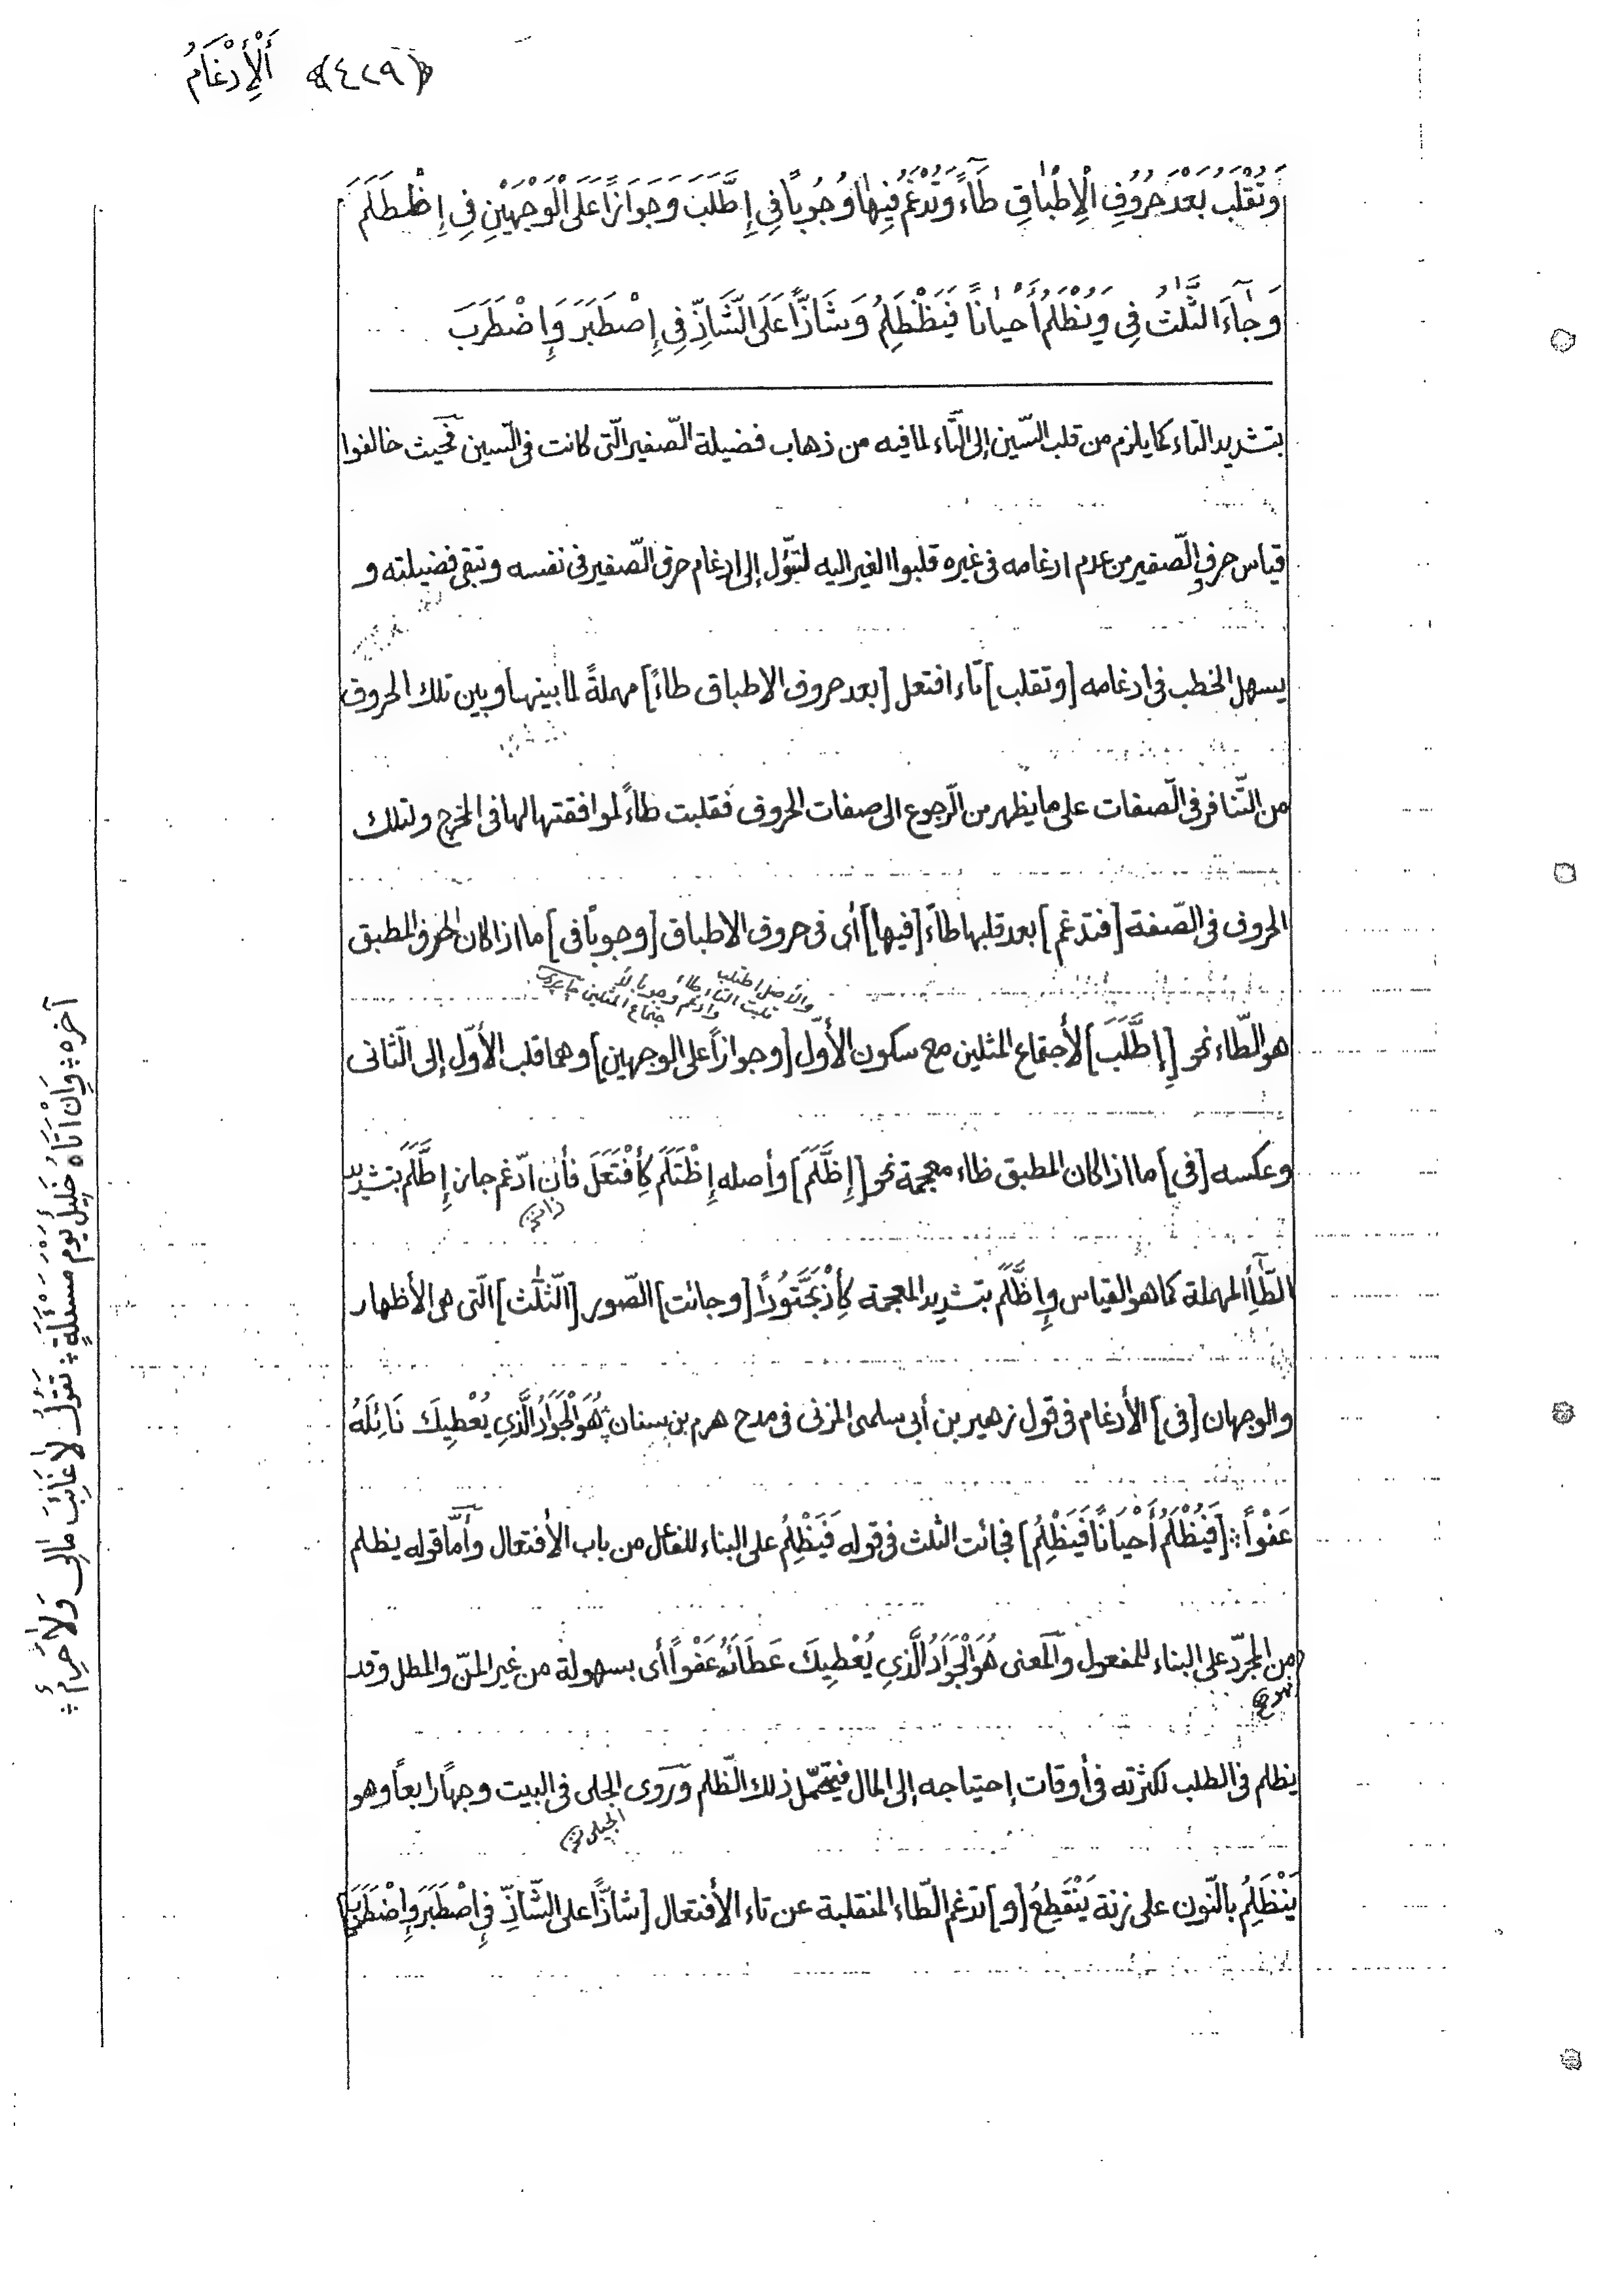 ﴿٤٢٩﴾ أَلْأِدْغَامُ
وَتُقْلَبُ بَعْدَ حُرُوُفِ الْاِطْبٰاقِ طَآءً وَتُدْغَمُ فِيهٰا وُجُوُبًا فِي إِطَّلَبَ وَجَوَازًا عَلَى الْوَجْهَيْنِ فِي إِظْطَلَمَ
وَجٰآءَ الثَّلٰثُ فِي وَيُظْلَمُ أَحْيٰانًا فَيَظْطَلِمُ وَشَاذًّا عَلَى الشَّاذِّ فِي إِصْطَبَرَ وَإِضْطَرَبَ
بتشديد التاء كما يلزم من قلب السّين إلى التّاء لما فيه من ذهاب فضيلة الصّفير الّتى كانت فى السّين فحيث خالفوا
قياس حرف الصّفير من عدم ادغامه فى غيره قلبوا الغير اليه لتؤّل إلى ادغام حرف الصّفير فى نفسه وتبقى فضيلته و
يسهل الخطب فى ادغامه [وتقلب] تاء افتعل [بعد حروف الاطباق طاءً] مهملةً لما بينها وبين تلك الحروف
من التّنافر فى الصّفات على ما يظهر من الرّجوع الى صفات الحروف فقلبت طاءً لموافقتها لها فى المخرج ولتلك
الحروف فى الصّفة [فتدغم] بعد قلبها طاءً [فيها] أى فى حروف الاطباق [وجوبًا فى] ما اذا كان الحرف المطبق
والأصل اطتلب
قلبت التاء طاء
وادغم وجوبا لأ
جتماع المثلين
هو الطّاء نحو [إِطَّلَبَ] لأجتماع المثلين مع سكون الأوّل [وجوازاً على الوجهين] وهما قلب الأوّل إلى الثّانى
وعكسه [فى] ما اذا كان المطبق ظاء معجمة نحو [إِظَّلَمَ] وأصله إِظْتَلَمَ كَأِفْتَعَلَ فأن ادّغم جاز إِطَّلَمَ بتشديد
الطّاءِ المهملة كما هو القياس وإِظَّلَمَ بتشديد المعجمة [وجائت] الصّور [الثّلٰث] الّتى هى الأظهار
والوجهان [فى] الأدغام فى قول زهير بن أبي سلمى المزنى فى مدح هرم بن سنان هُوَ الْجَوَادُ الَّذِي يُعْطِيكَ نَائِلَهُ
عَفْواً ؞ [فَيُظْلَمُ أَحْيَانًا فَيَظْلِمُ] فجائت الثلث فى قوله فَيَظْلِمُ على البناء للفاعل من باب الأفتعال وأمّا قوله يظلم
من المجرّد على البناء للمفعول والمعنى هُوَ الْجَوَادُ الَّذِي يُعْطِيكَ عَطَائَهُ عَفْواً أى بسهولة من غير المنّ والمطل وقد
يظلم فى الطلب لكثرته فى أوقات إحتياجه إلى المال فيتحمّل ذلك الظّلم وَرَوى الجلى فى البيت وجهًا رابعاً وهو
الجيلى
يَنْظَلِمُ بالنّون على زنة يَنْقَطِعُ [و] تدغم الطّاء المنقلبة عن تاء الأفتعال [شاذًّا على الشّاذِّ فِي إِصْطَبَرَ وَإِضْطَرَبَ]
آخره ؞ وَإِنْ أتَاهُ خَلِيلٌ يَوْمَ مَسْئَلَةٍ ؞ يَقُولُ لٰا غٰائِبٌ مٰالِى وَلٰا حَرِمُ ؞